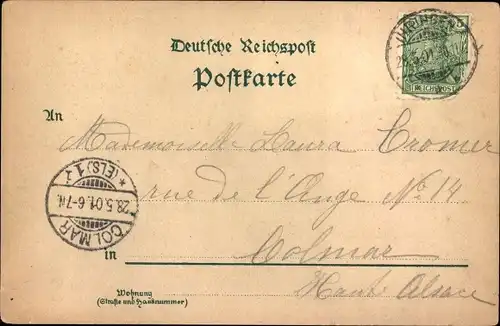 Deutsche Reichspost
Postkarte
IHRINGEN
28.5.01
REICHSPOST
An
Mademoiselle Laura Cromer
rue de l'Ange No. 14
COLMAR
28.5.01.6-7N.
*(ELS.)1.
in Colmar
Haute Alsace
Wohnung
(Straße und Hausnummer)